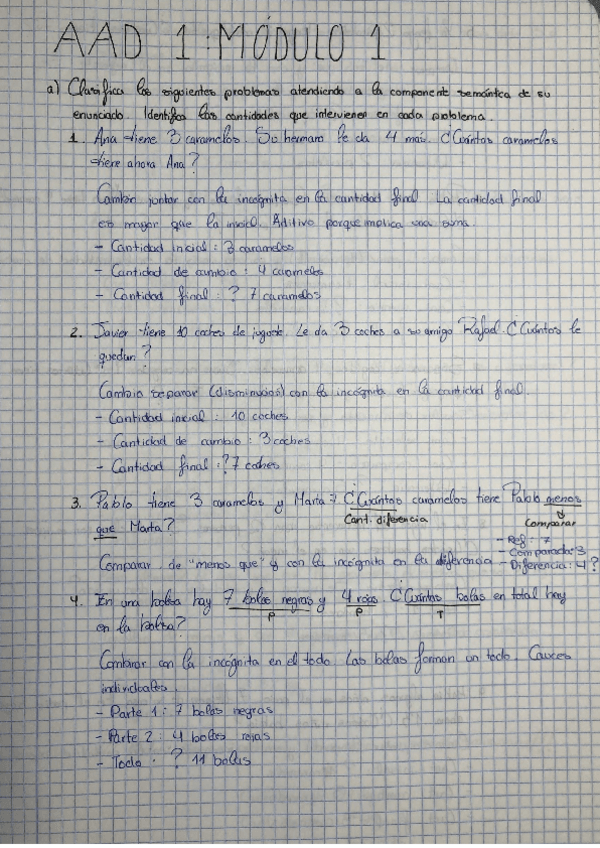 AAD 1: MÓDULO 1
a) Clasifica los siguientes problemas atendiendo a la componente semántica de su
enunciado. Identifica las cantidades que intervienen en cada problema.
1. Ana tiene 3 caramelos. Su hermano le da 4 más. ¿Cuántos caramelos
tiene ahora Ana?
Cambio juntar con la incógnita en la cantidad final. La cantidad final
es mayor que la inicial. Aditivo porque implica una suma.
- Cantidad inicial: 3 caramelos
- Cantidad de cambio: 4 caramelos
- Cantidad final: ? 7 caramelos
2. Javier tiene 10 coches de juguete. Le da 3 coches a su amigo Rafael. ¿Cuántos le
quedan?
Cambio separar (disminución) con la incógnita en la cantidad final.
- Cantidad inicial: 10 coches
- Cantidad de cambio: 3 coches
- Cantidad final: ? 7 coches
3. Pablo tiene 3 caramelos y Marta 7 ¿Cuántos caramelos tiene Pablo menos
que Marta?
Cant. diferencia
Comparar
- Ref: 7
- Comparada: 3
- Diferencia: 4?
Comparar, de "menos que" y con la incógnita en la diferencia
4. En una bolsa hay 7 bolas negras y 4 rojas. ¿Cuántas bolas en total hay
P P T
en la bolsa?
Combinar con la incógnita en el todo. Las bolas forman un todo.
individuales.
- Parte 1: 7 bolas negras
- Parte 2: 4 bolas rojas
- Todo: ? 11 bolas